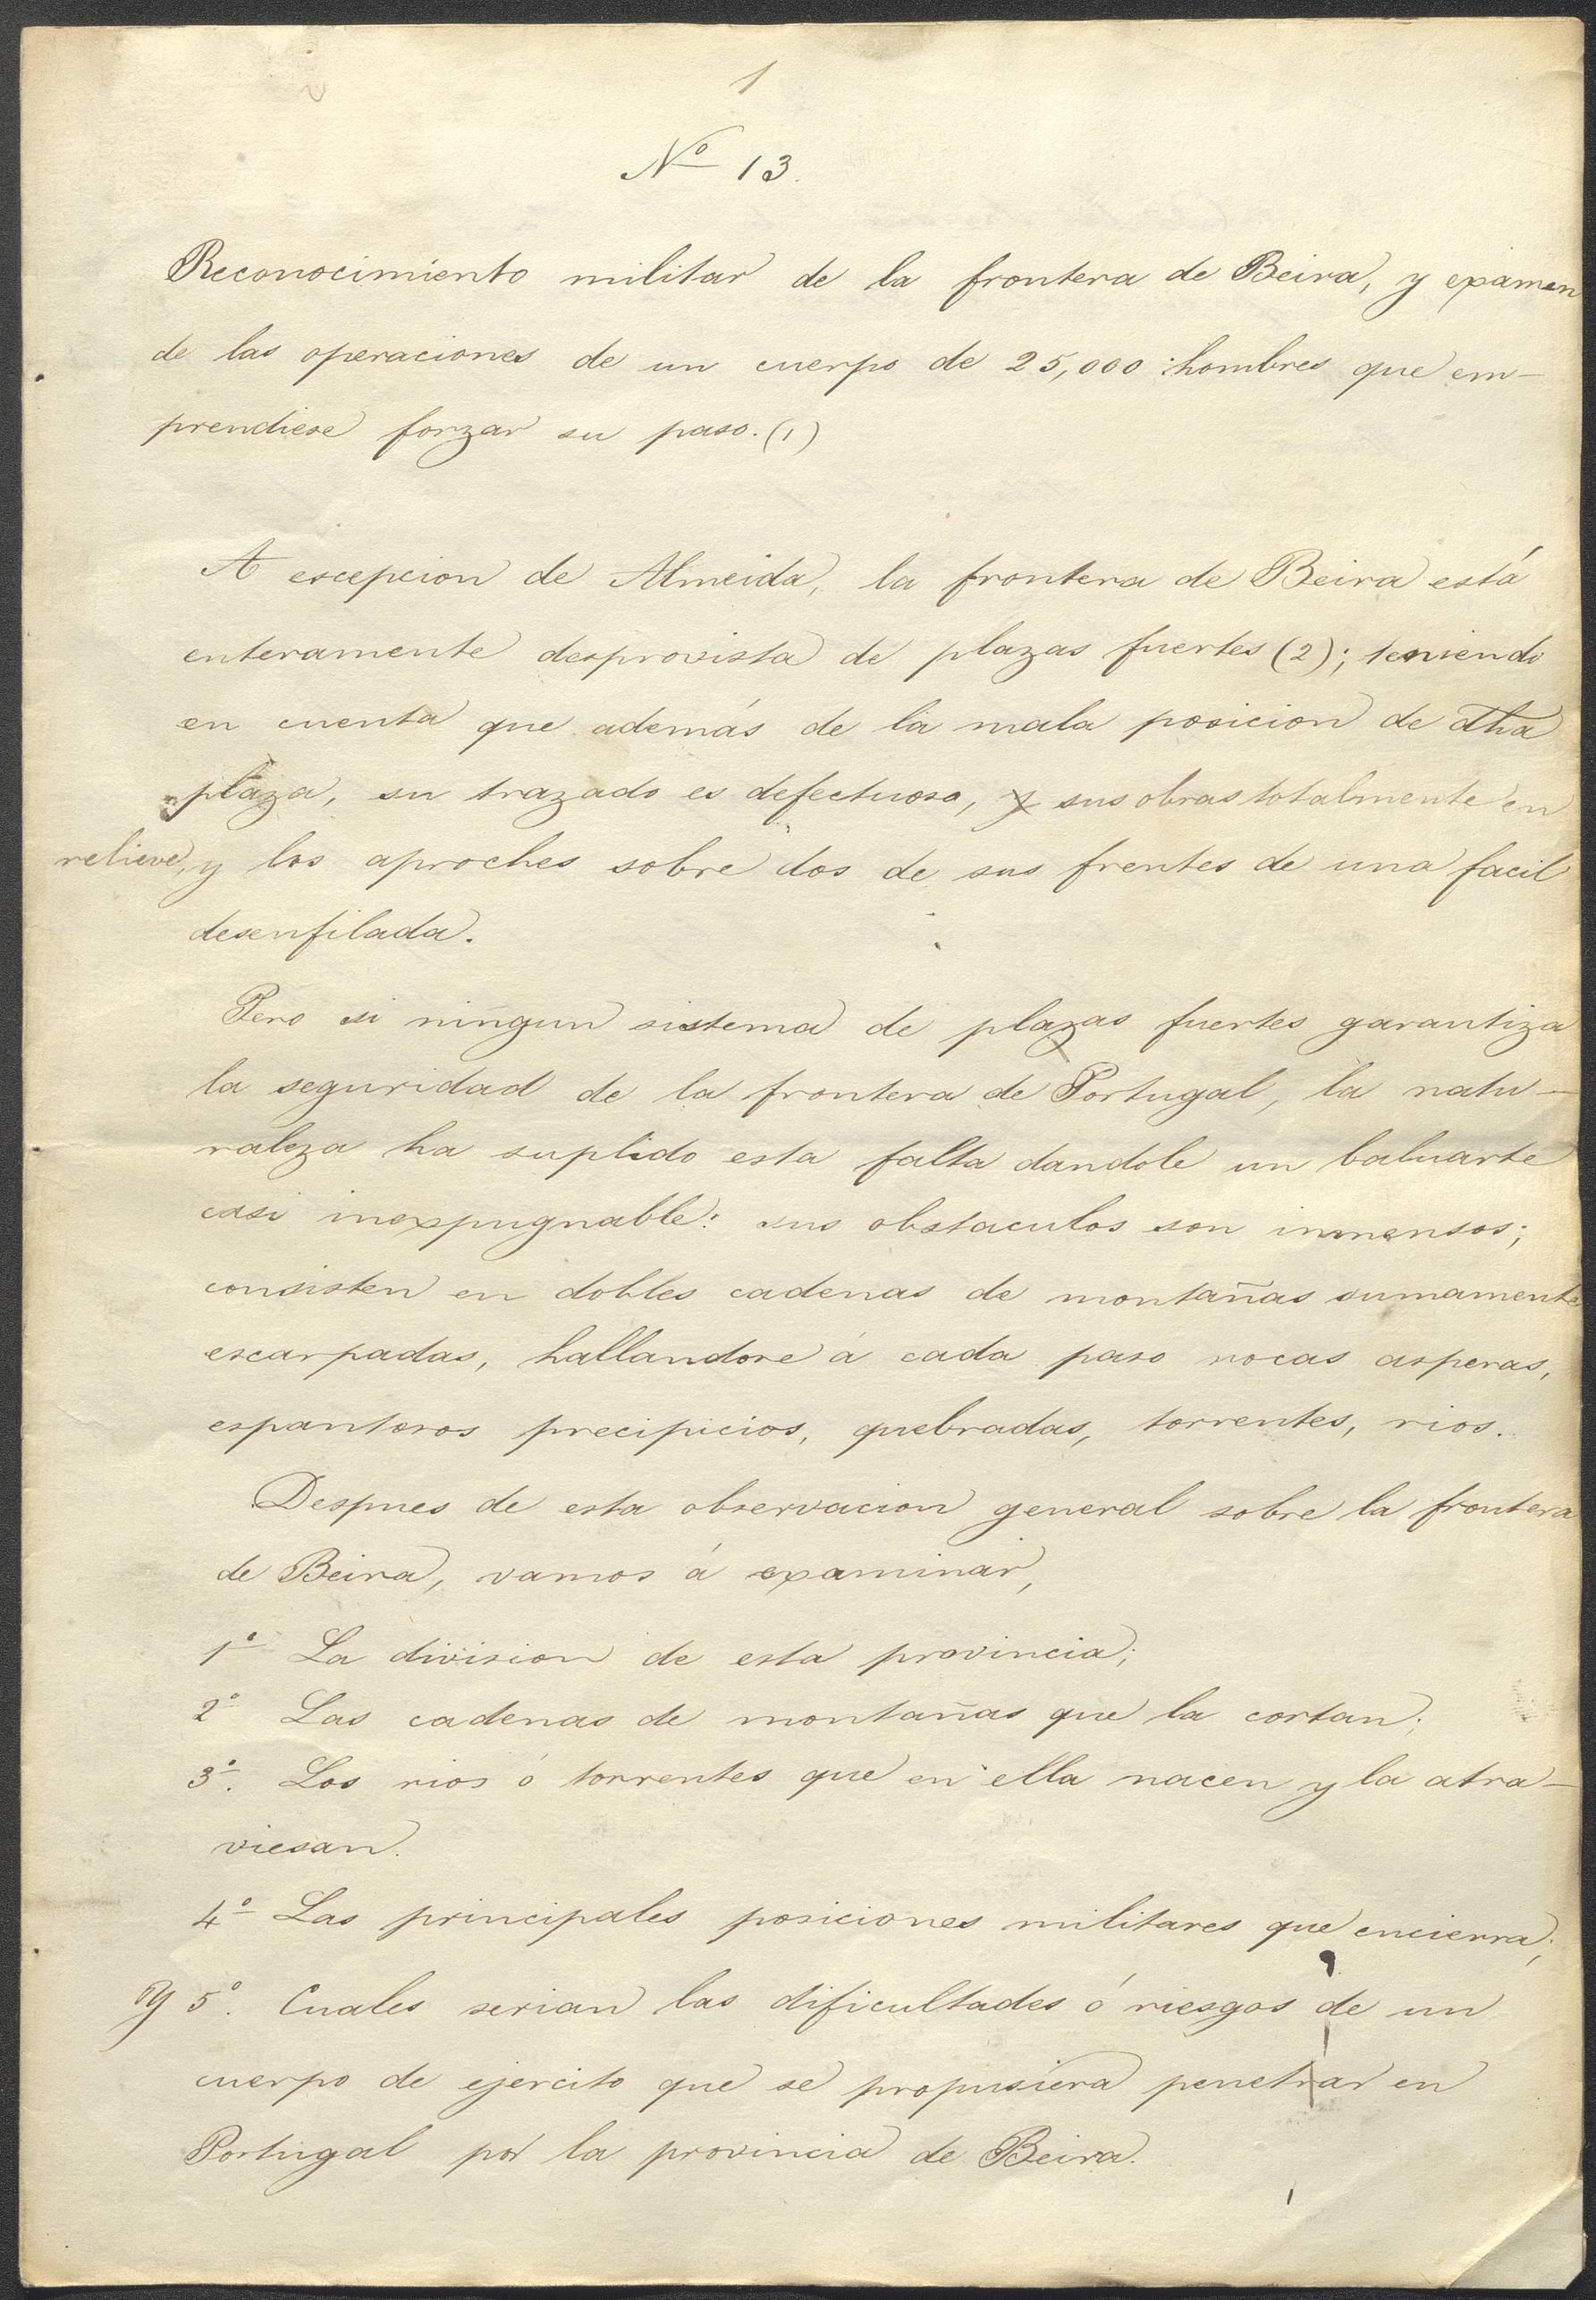 1
Nº 13.
Reconocimiento militar de la frontera de Beira, y examen
de las operaciones de un cuerpo de 25,000 hombres que em-
prendiese forzar su paso. (1)
A escepcion de Almeida, la frontera de Beira está
enteramente desprovista de plazas fuertes (2); teniendo
en cuenta que además de la mala posicion de dha
plaza, su trazado es defectuoso, y sus obras totalmente en
relieve, y los aproches sobre dos de sus frentes de una facil
desenfilada.
Pero si ningun sistema de plazas fuertes garantiza
la seguridad de la frontera de Portugal, la natu-
raleza ha suplido esta falta dandole un baluarte
casi inexpugnable: sus obstaculos son inmensos;
consisten en dobles cadenas de montañas sumamente
escarpadas, hallandose á cada paso rocas asperas,
espantosos precipicios, quebradas, torrentes, rios.
Despues de esta observacion general sobre la frontera
de Beira, vamos á examinar,
1º La division de esta provincia;
2º Las cadenas de montañas que la cortan;
3º. Los rios ó torrentes que en ella nacen y la atra-
viesan.
4º Las principales posiciones militares que encierra;
Y 5º. Cuales serian las dificultades ó riesgos de un
cuerpo de ejercito que se propusiera penetrar en
Portugal por la provincia de Beira.